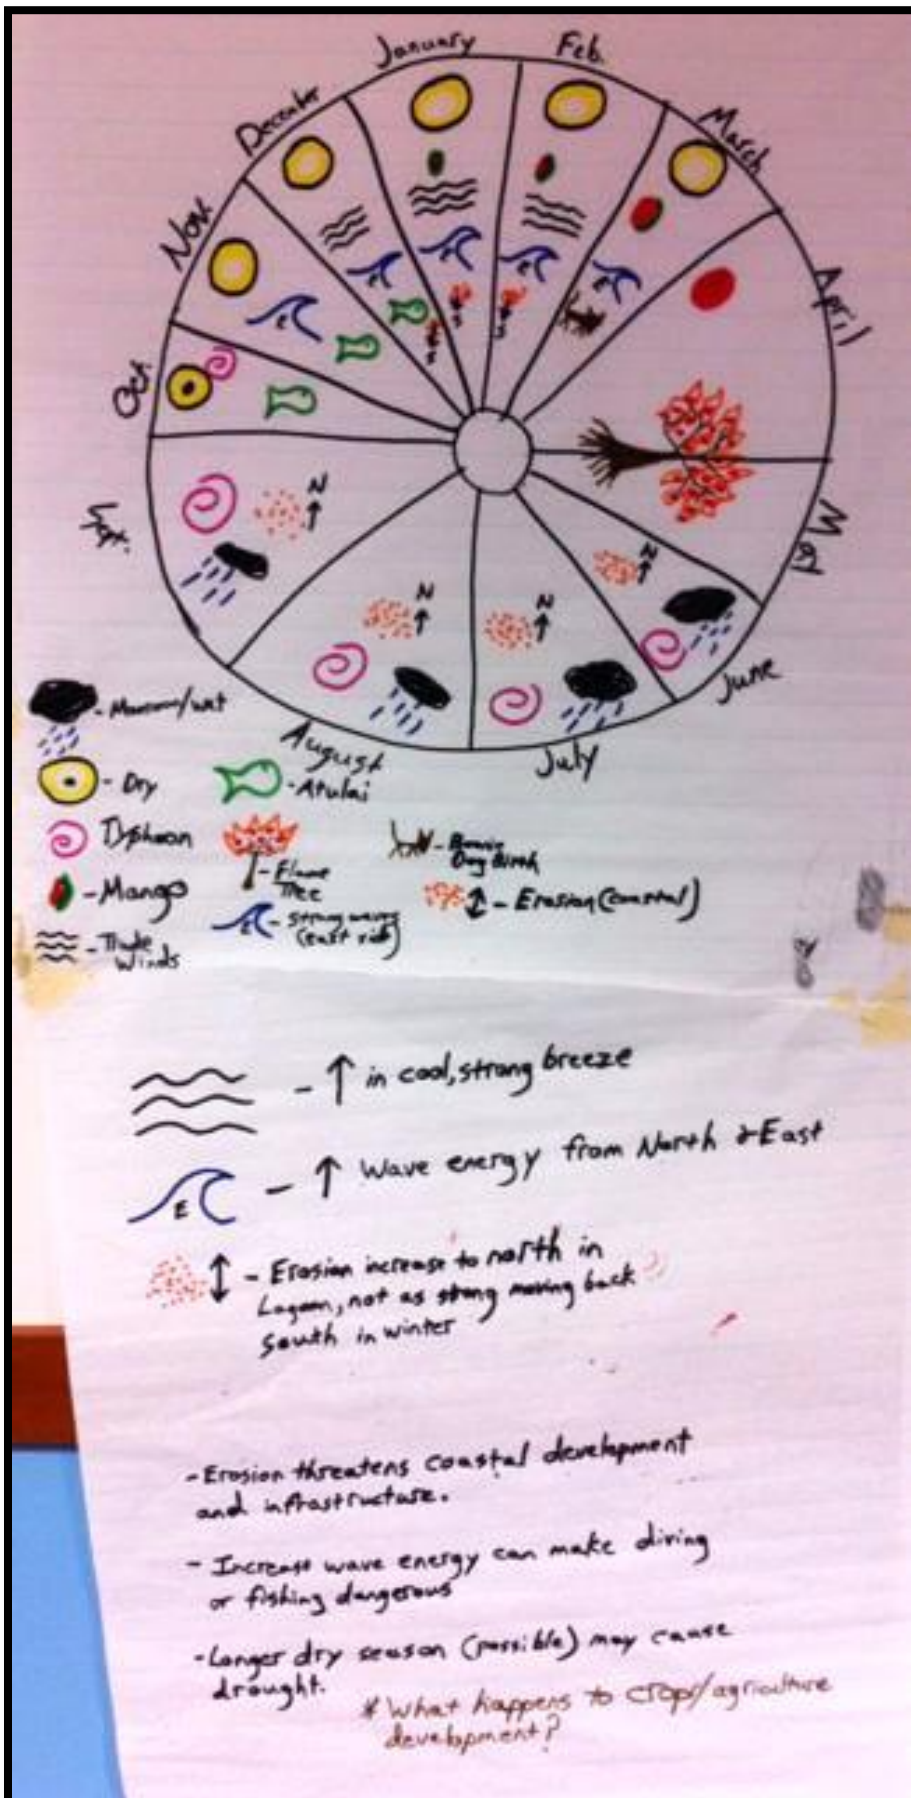 January
Feb.
March
April
May
June
July
August
Sept.
Oct.
Nov.
December
E
E
E
E
E
S
S
S
N
N
N
N
- Monsoon/wet
- Dry
Typhoon
- Mango
- Trade
Winds
- Atulai
- Flame
Tree
E
- strong waves
(east side)
-
Dog Birth
- Erosion (coastal)
- ↑ in cool, strong breeze
E
- ↑ Wave energy from North & East
↕ - Erosion increase to north in
Lagoon, not as strong moving back
South in winter
- Erosion threatens coastal development
and infrastructure.
- Increase wave energy can make diving
or fishing dangerous
- Longer dry season (possible) may cause
drought.
* What happens to crops/agriculture
development?